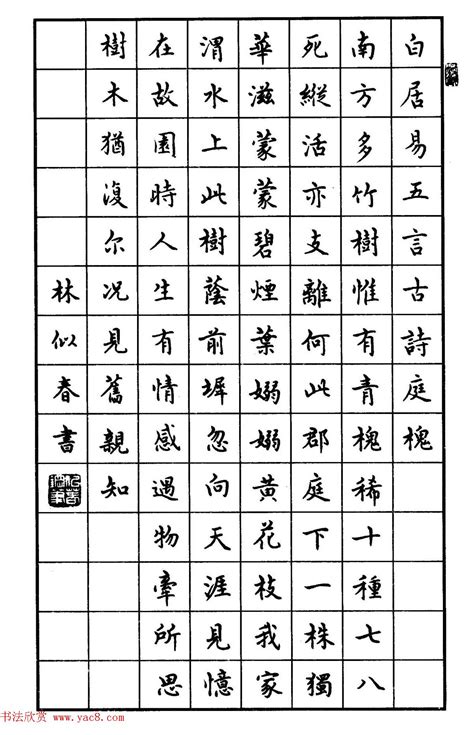 白居易五言古詩庭槐
南方多竹樹惟有青槐稀十種七八
死縱活亦支離何此郡庭下一株獨
華滋蒙蒙碧煙葉嫋嫋黄花枝我家
渭水上此樹蔭前墀忽向天涯見憶
在故園時人生有情感遇物牽所思
樹木猶復尔况見舊親知
林似春書
书法欣赏 www.yac8.com